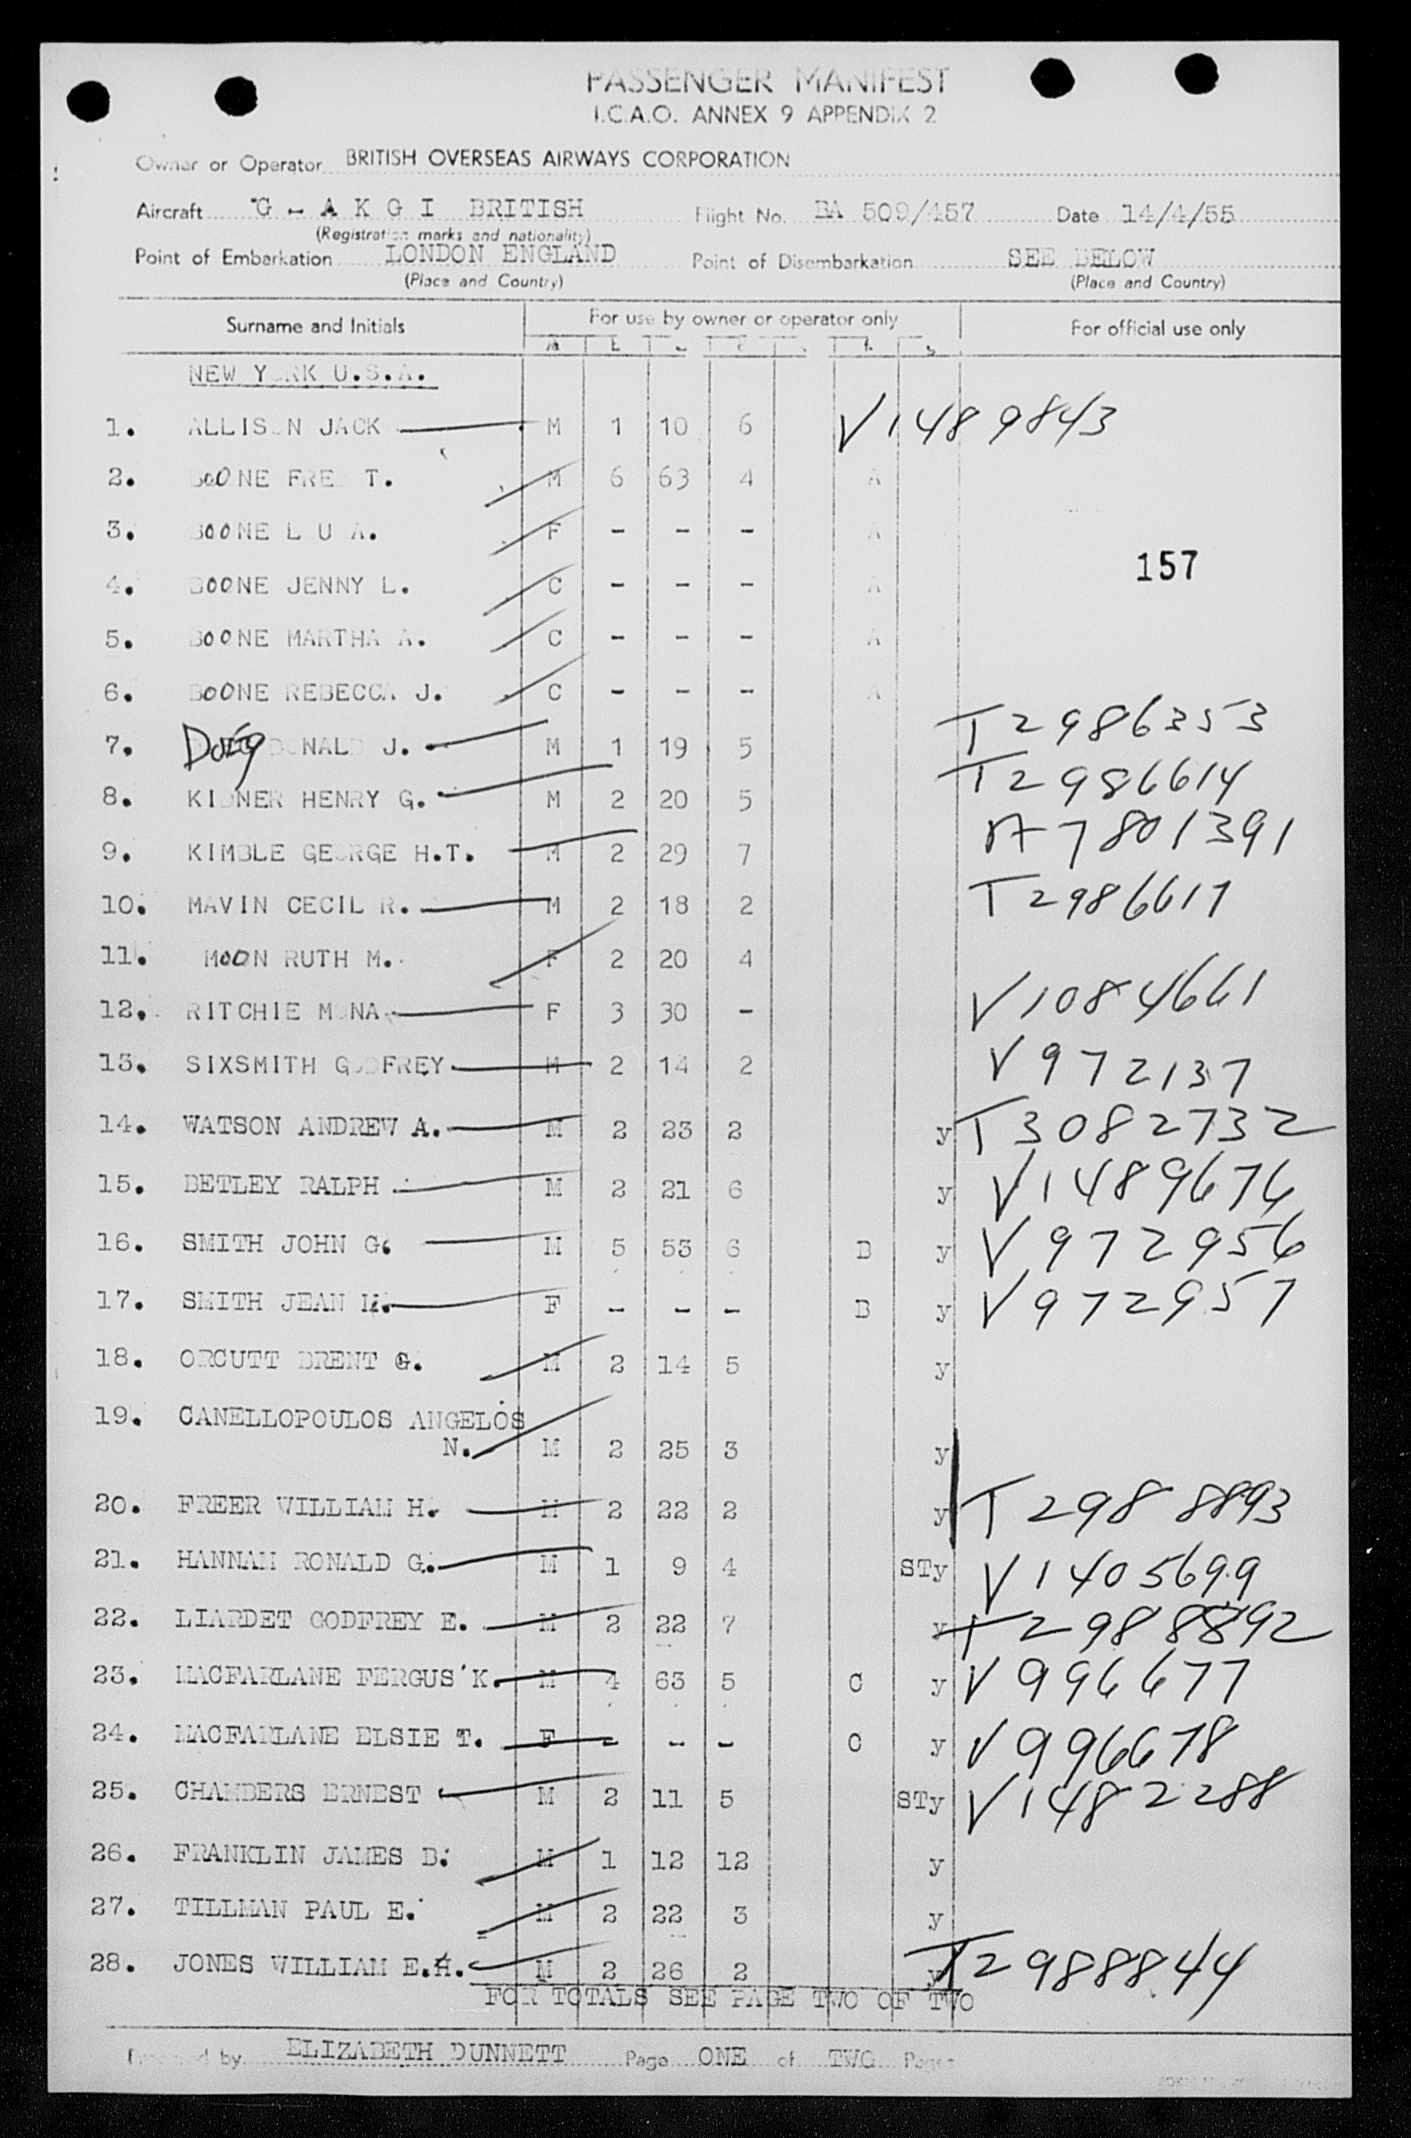 PASSENGER MANIFEST
I.C.A.O. ANNEX 9 APPENDIX 2
Owner or Operator BRITISH OVERSEAS AIRWAYS CORPORATION
Aircraft G - A K G I BRITISH Flight No. BA 509/457 Date 14/4/55
(Registration marks and nationality)
Point of Embarkation LONDON ENGLAND Point of Disembarkation SEE BELOW
(Place and Country) (Place and Country)
Surname and Initials For use by owner or operator only For official use only
NEW YORK U.S.A.
1. ALLISON JACK M 1 10 6 V1489843
2. BOONE FRED T. M 6 63 4 A
3. BOONE LOU A. F - - - A
157
4. BOONE JENNY L. C - - - A
5. BOONE MARTHA A. C - - - A
6. BOONE REBECCA J. C - - - A
7. DOIG DONALD J. M 1 19 5 T2986353
8. KIDNER HENRY G. M 2 20 5 T2986614
9. KIMBLE GEORGE H.T. M 2 29 7 A7801391
10. MAVIN CECIL R. M 2 18 2 T2986617
11. MOON RUTH M. F 2 20 4
12. RITCHIE MONA F 3 30 - V1084661
13. SIXSMITH GODFREY M 2 14 2 V972137
14. WATSON ANDREW A. M 2 23 2 y T3082732
15. BETLEY RALPH M 2 21 6 y V1489676
16. SMITH JOHN G. M 5 53 6 B y V972956
17. SMITH JEAN M. F - - - B y V972957
18. ORCUTT BRENT G. M 2 14 5 y
19. CANELLOPOULOS ANGELOS
N. M 2 25 3 y
20. FREER WILLIAM H. M 2 22 2 y T2988893
21. HANNAH RONALD G. M 1 9 4 STy V1405699
22. LIARDET GODFREY E. M 2 22 7 y T2988892
23. MACFARLANE FERGUS K. M 4 63 5 C y V996677
24. MACFARLANE ELSIE T. F - - - C y V996678
25. CHAMBERS ERNEST M 2 11 5 STy V1482288
26. FRANKLIN JAMES B. M 1 12 12 y
27. TILLMAN PAUL E. M 2 22 3 y
28. JONES WILLIAM E.H. M 2 26 2 y T2988844
FOR TOTALS SEE PAGE TWO OF TWO
Prepared by ELIZABETH DUNNETT Page ONE of TWO Pages